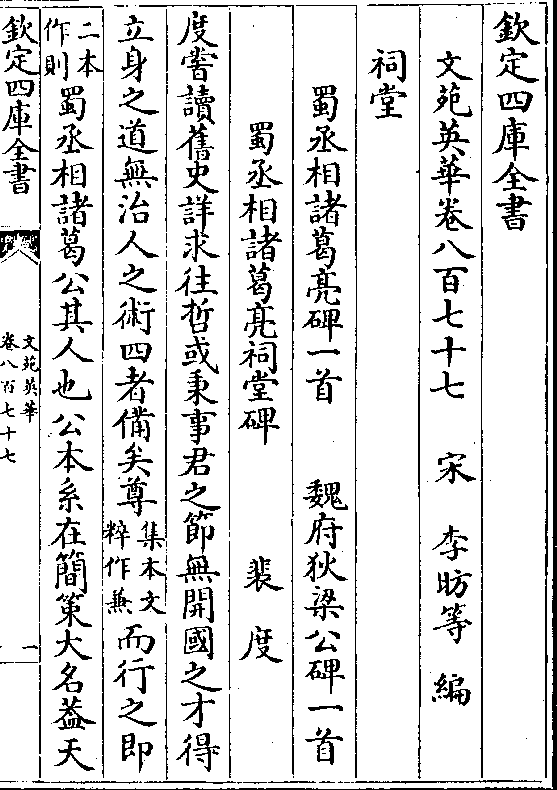 欽定四庫全書
文苑英華卷八百七十七 宋 李昉等 編
祠堂
蜀丞相諸葛亮碑一首 魏府狄梁公碑一首
蜀丞相諸葛亮祠堂碑 裴度
度嘗讀舊史詳求往哲或秉事君之節無開國之才得
立身之道無治人之術四者備矣尊集本文粹作兼而行之即
二本作則蜀丞相諸葛公其人也公本系在簡策大名葢天
欽定四庫全書
文苑英華
卷八百七十七
一